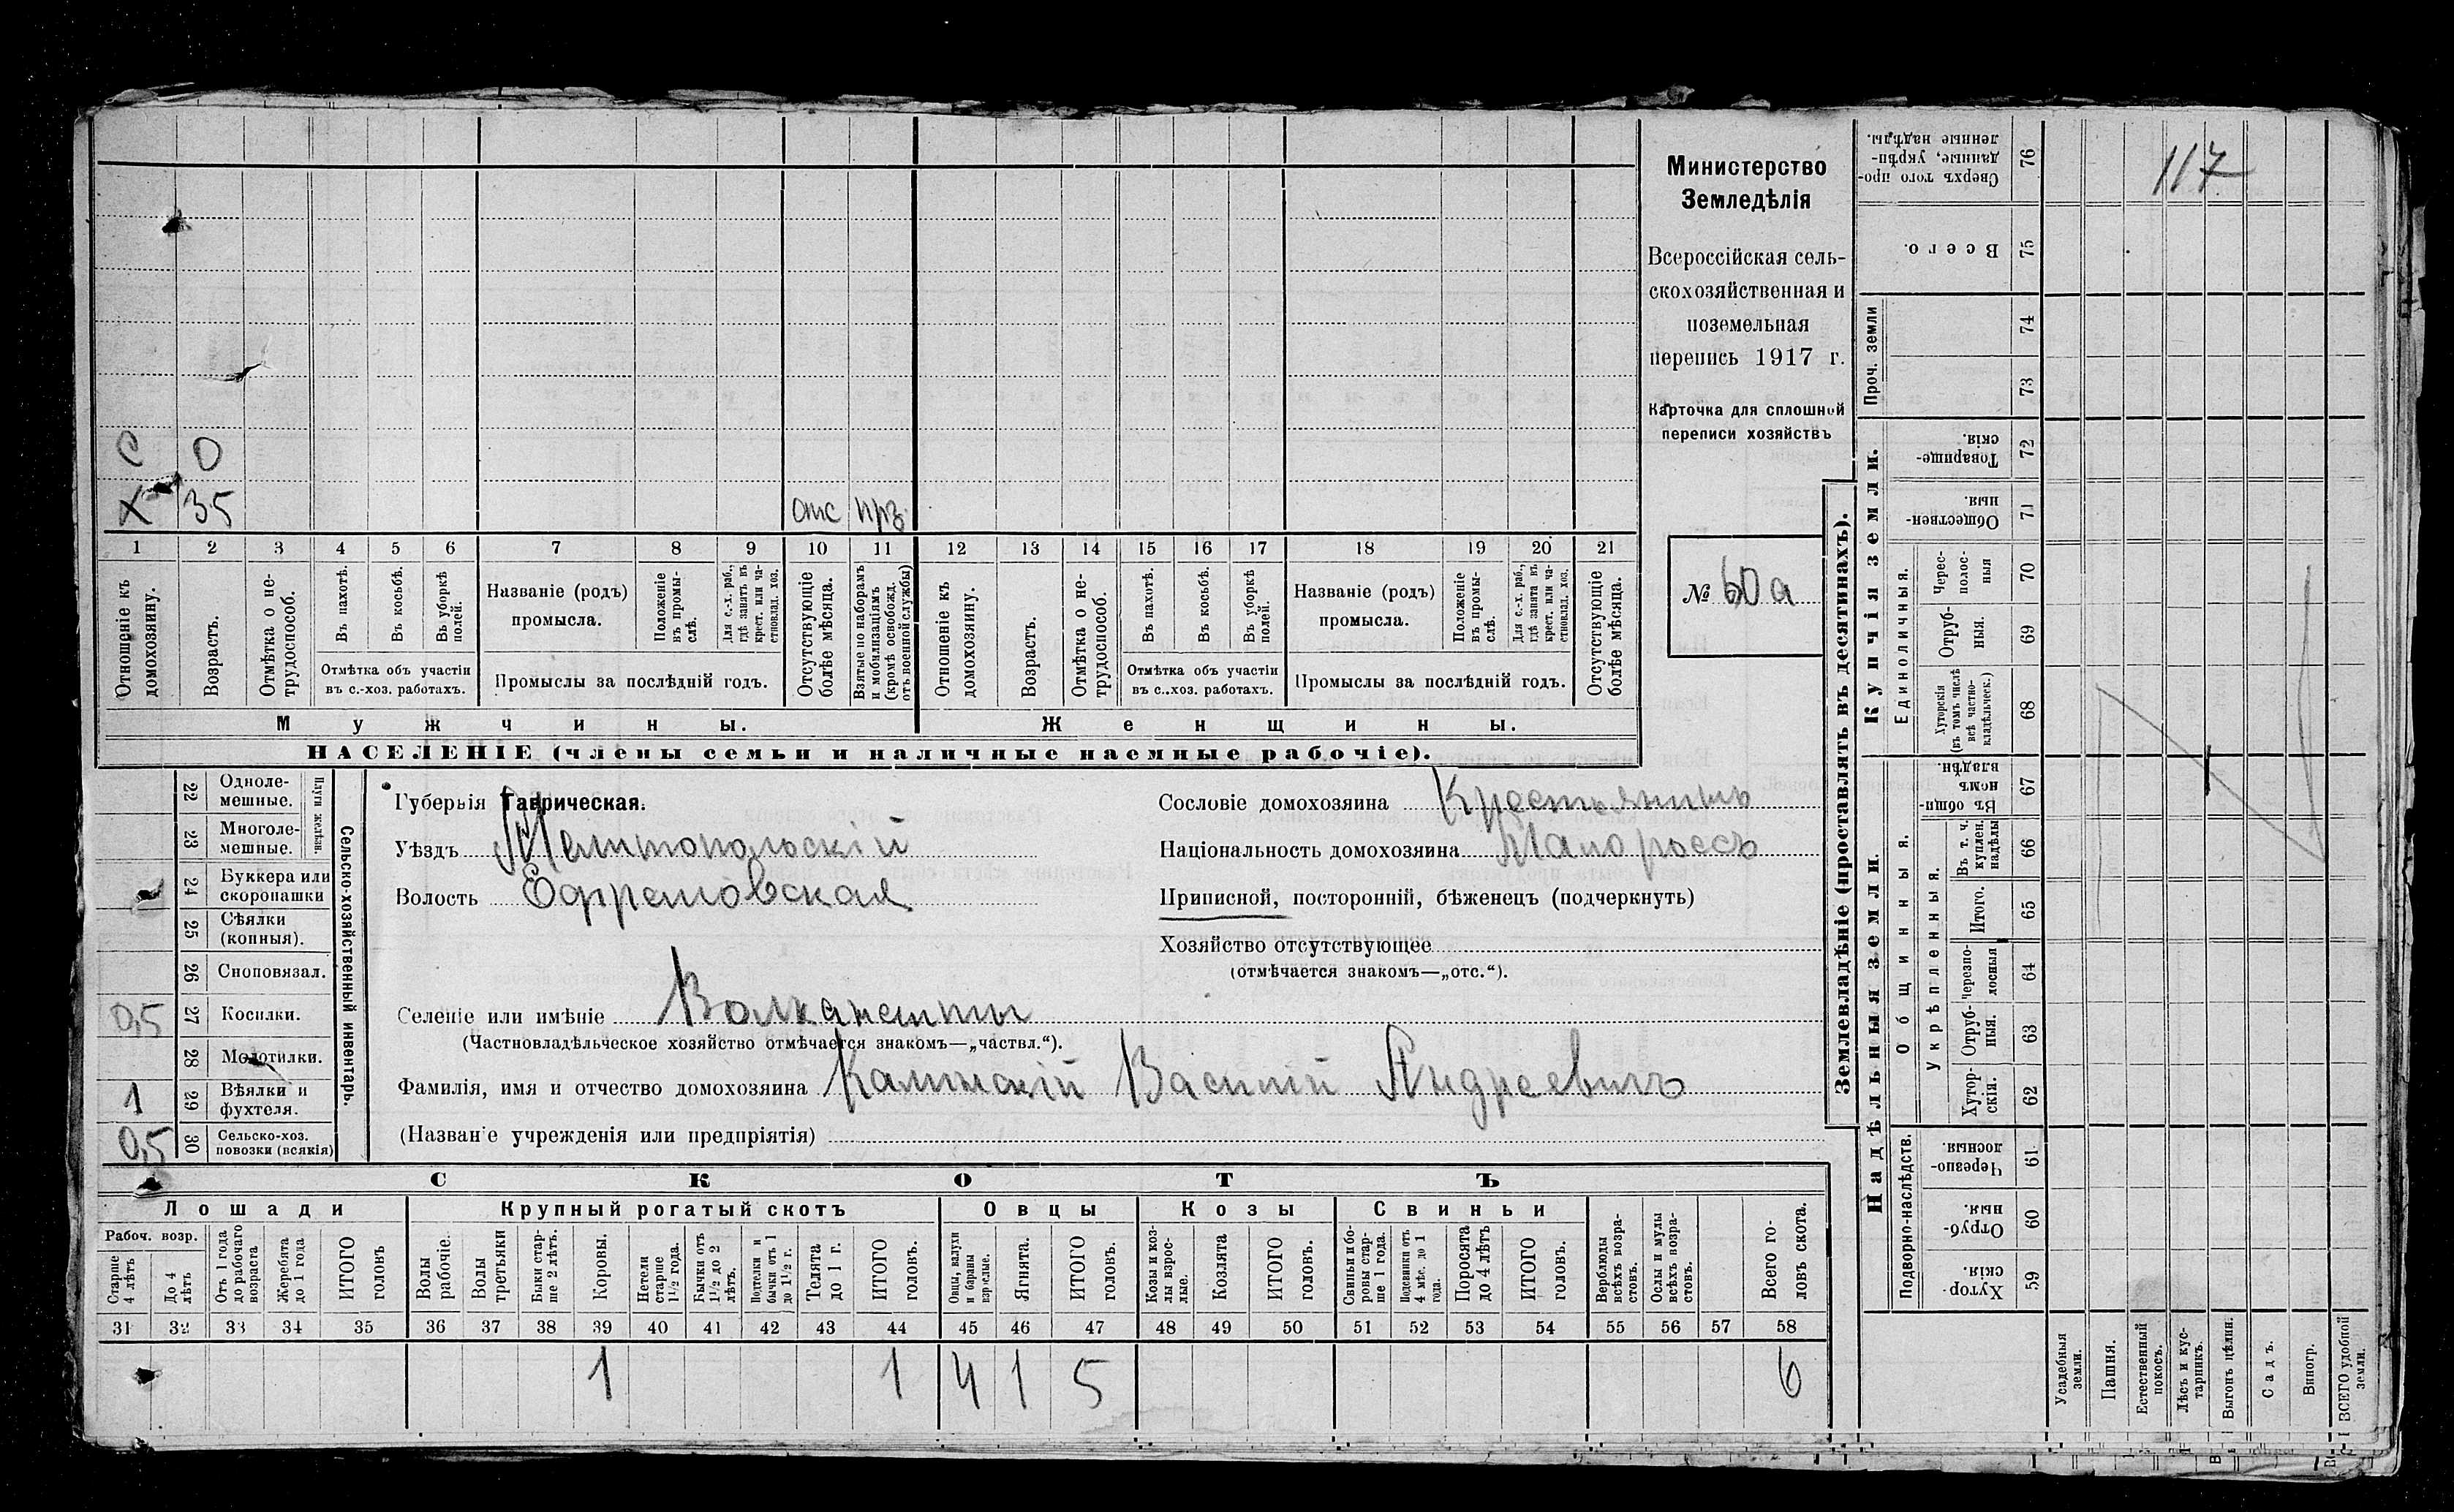 117
Министерство
Земледѣлія
Всероссійская сель-
скохозяйственная и
поземельная
перепись 1917 г.
Карточка для сплошной
переписи хозяйствъ
№ 60а
С 0
Х 35 отс прз.
1 2 3 4 5 6 7 8 9 10 11 12 13 14 15 16 17 18 19 20 21
Отношеніе къ домохозяину.
Возрастъ.
Отмѣтка о не-трудоспособ.
Въ пахотѣ.
Въ косьбѣ.
Въ уборкѣ полей.
Отмѣтка объ участіи
въ с.-хоз. работахъ.
Названіе (родъ)
промысла.
Положеніе въ промы-слѣ.
Для с.-х. раб., гдѣ занятъ въ крест. или ча-стновлад. хоз.
Промыслы за послѣдній годъ.
Отсутствующіе болѣе мѣсяца.
Взятые по наборамъ и мобилизаціямъ (кромѣ освобожд. отъ военной службы)
Отношеніе къ домохозяину.
Возрастъ.
Отмѣтка о не-трудоспособ.
Въ пахотѣ.
Въ косьбѣ.
Въ уборкѣ полей.
Отмѣтка объ участіи
въ с.-хоз. работахъ.
Названіе (родъ)
промысла.
Положеніе въ промы-слѣ.
Для с.-х. раб., гдѣ занята въ крест. или ча-стновлад. хоз.
Промыслы за послѣдній годъ.
Отсутствующіе болѣе мѣсяца.
Мужчины. Женщины.
НАСЕЛЕНІЕ (члены семьи и наличные наемные рабочіе).
Сельско-хозяйственный инвентарь.
Плуги желѣзн.
22 Одноле-мешные.
23 Многоле-мешные.
24 Буккера или скоропашки
25 Сѣялки (конныя).
26 Сноповязал.
0,5 27 Косилки.
28 Молотилки.
1 29 Вѣялки и фухтеля.
0,5 30 Сельско-хоз. повозки (всякія)
Губернія Таврическая.
Уѣздъ Мелитопольскій
Волость Ефремовская
Сословіе домохозяина Крестьянинъ
Національность домохозяина Малороссъ
Приписной, посторонній, бѣженецъ (подчеркнуть)
Хозяйство отсутствующее
(отмѣчается знакомъ—„отс.“).
Селеніе или имѣніе Волканешты
(Частновладѣльческое хозяйство отмѣчается знакомъ—„частвл.“).
Фамилія, имя и отчество домохозяина Калинскій Василій Андреевичъ
(Названіе учрежденія или предпріятія)
СКОТЪ
Лошади Крупный рогатый скотъ Овцы Козы Свиньи
Рабоч. возр.
Старше 4 лѣтъ
До 4 лѣтъ
Отъ 1 года до рабочаго возраста
Жеребята до 1 года
ИТОГО головъ
Волы рабочіе.
Волы третьяки
Быки стар-ше 2 лѣтъ.
Коровы.
Нетели старше 1½ года.
Бычки отъ 1½ до 2 лѣтъ.
Подтелки и бычки отъ 1 до 1½ г.
Телята до 1 г.
ИТОГО головъ.
Овцы, валухи и бараны взрослые.
Ягнята.
ИТОГО головъ.
Козы и коз-лы взрос-лые.
Козлята
ИТОГО головъ.
Свиньи и бо-ровы стар-ше 1 года.
Подсвинки отъ 4 мѣс. до 1 года.
Поросята до 4 лѣтъ
ИТОГО головъ.
Верблюды всѣхъ возра-стовъ.
Ослы и мулы всѣхъ возра-стовъ.
Всего го-ловъ скота.
31 32 33 34 35 36 37 38 39 40 41 42 43 44 45 46 47 48 49 50 51 52 53 54 55 56 57 58
1 1 4 1 5 6
Землевладѣніе (проставлять въ десятинахъ).
Купчія земли.
Надѣльныя земли.
Проч. земли
Единоличныя.
Общинныя.
Укрѣпленныя.
Подворно-наслѣдств.
Сверхъ того про-данные, укрѣп-ленные надѣлы. 76
Всего. 75
74
73
Товарище-скія. 72
Обществен-ныя. 71
Черес-полос-ныя 70
Отруб-ныя. 69
Хуторскія (въ томъ числѣ всѣ частно-владѣльческ.) 68
Въ общи-номъ владѣн. 67
Въ т. ч. куплен. надѣлы 66
Итого. 65
Черезпо-лосныя 64
Отруб-ныя. 63
Хутор-скія. 62
Черезпо-лосныя 61
Отруб-ныя. 60
Хутор-скія. 59
Усадебныя земли.
Пашня.
Естественный покосъ.
Лѣсъ и кус-тарникъ.
Выгонъ цѣлин.
Садъ.
Виногр.
ВСЕГО удобной земли.